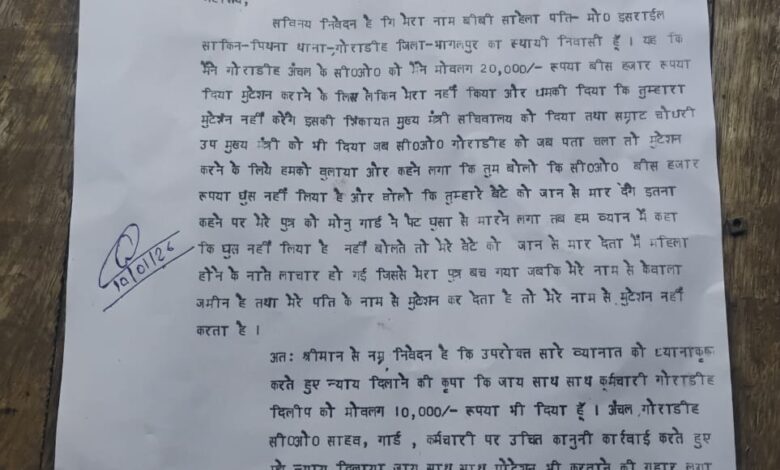 सविनय निवेदन है कि मेरा नाम बीबी साहेला पति- मो0 इसराईल
साकिन-पिथना थाना-गोराडीह जिला-भागलपुर का स्थायी निवासी हूँ । यह कि
मैंने गोराडीह अंचल के सी0ओ0 को मैंने मोवलग 20,000/- रूपया बीस हजार रूपया
दिया मुटेशन कराने के लिए लेकिन मेरा नहीं किया और धमकी दिया कि तुम्हारा
मुटेशन नहीं करेंगे इसकी शिकायत मुख्य मंत्री सचिवालय को दिया तथा सम्राट चोधरी
उप मुख्य मंत्री को भी दिया जब सी0ओ0 गोराडीह को जब पता चला तो मुटेशन
करने के लिये हमको बुलाया और कहने लगा कि तुम बोलो कि सी0ओ0 बीस हजार
रूपया घुस नहीं लिया है और वोलो कि तुम्हारे बेटे को जान से मार देंगे इतना
कहने पर मेरे पुत्र को मोनु गार्ड ने फैट घुसा से मारने लगा तब हम व्यान में कहा
कि घुस नहीं लिया है नहीं बोलते तो मेरे बेटे को जान से मार देता में महिला
होने के नाते लाचार हो गई जिससे मेरा पुत्र बच गया जबकि मेरे नाम से केवाला
जमीन है तथा मेरे पति के नाम से मुटेशन कर देता है तो मेरे नाम से मुटेशन नहीं
करता है ।
10/01/26
अतः श्रीमान से नम्र निवेदन है कि उपरोक्त सारे व्यानात को ध्यानाकृक
करते हुए न्याय दिलाने की कृपा कि जाय साथ साथ कर्मचारी गोराडीह
दिलीप को मोवलग 10,000/- रूपया भी दिया हूँ । अंचल गोराडीह
सी0ओ0 साहव, गार्ड , कर्मचारी पर उचित कानुनी कार्रवाई करते हुए